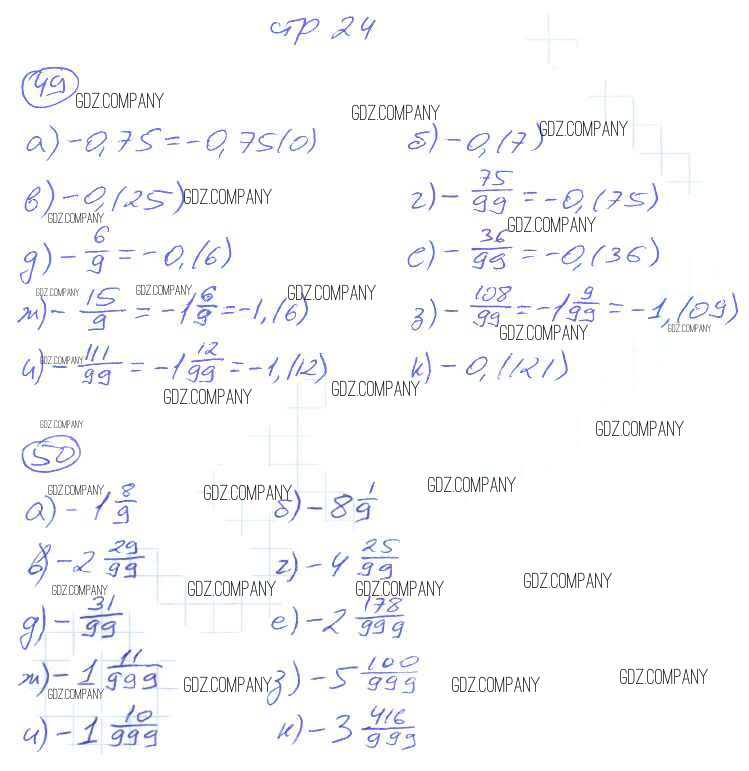 стр 24
49
GDZ.COMPANY
GDZ.COMPANY
GDZ.COMPANY
а) -0,75 = -0,75(0) б) -0,(7)
в) -0,(25) GDZ.COMPANY г) -75/99 = -0,(75)
GDZ.COMPANY GDZ.COMPANY
д) -6/9 = -0,(6) е) -36/99 = -0,(36)
GDZ.COMPANY GDZ.COMPANY GDZ.COMPANY
ж) -15/9 = -1 6/9 = -1,(6) з) -108/99 = -1 9/99 = -1,(09)
GDZ.COMPANY GDZ.COMPANY GDZ.COMPANY
и) -111/99 = -1 12/99 = -1,(12) к) -0,(121)
GDZ.COMPANY GDZ.COMPANY
GDZ.COMPANY GDZ.COMPANY
50
GDZ.COMPANY GDZ.COMPANY GDZ.COMPANY
а) -1 8/9 б) -8 1/9
в) -2 29/99 г) -4 25/99
GDZ.COMPANY GDZ.COMPANY GDZ.COMPANY GDZ.COMPANY
д) -31/99 е) -2 178/999
ж) -1 11/999 з) -5 100/999
GDZ.COMPANY GDZ.COMPANY GDZ.COMPANY GDZ.COMPANY
и) -1 10/999 к) -3 416/999